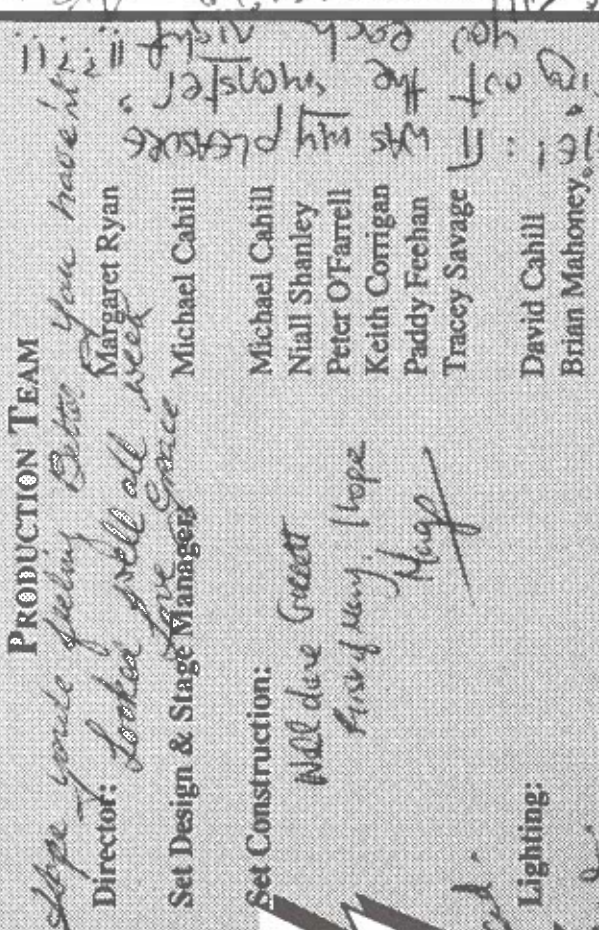 PRODUCTION TEAM
Hope you're feeling Better you haven't
Director: Margaret Ryan
Looked well all week
Love Grace
Set Design & Stage Manager: Michael Cahill
Set Construction: Michael Cahill
Niall Shanley
Peter O'Farrell
Keith Corrigan
Paddy Feehan
Tracey Savage
Well done
First of many I hope
Lighting: David Cahill
Brian Mahoney
It was my pleasure
the monster
you each night